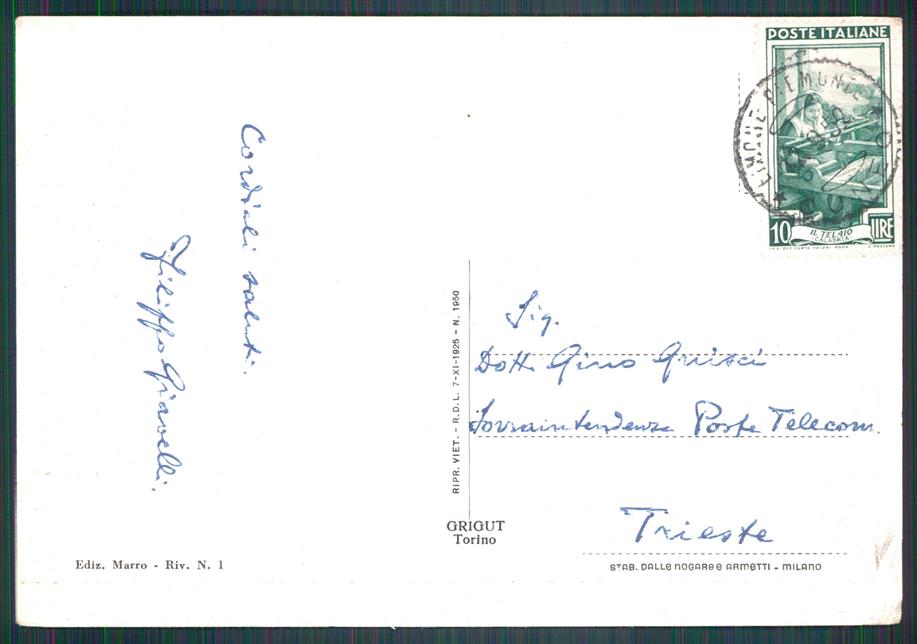 Cordiali saluti.
Filippo Giavelli.
POSTE ITALIANE
10 LIRE
IL TELAIO
(CALABRIA)
LIMONE PIEMONTE
CUNEO
RIPR. VIET. - R.D.L. 7-XI-1925 - N. 1950
Sig.
Dott. Gino Grisci
Sovraintendenza Poste Telecom.
Trieste
GRIGUT
Torino
Ediz. Marro - Riv. N. 1
STAB. DALLE NOGARE e ARMETTI - MILANO